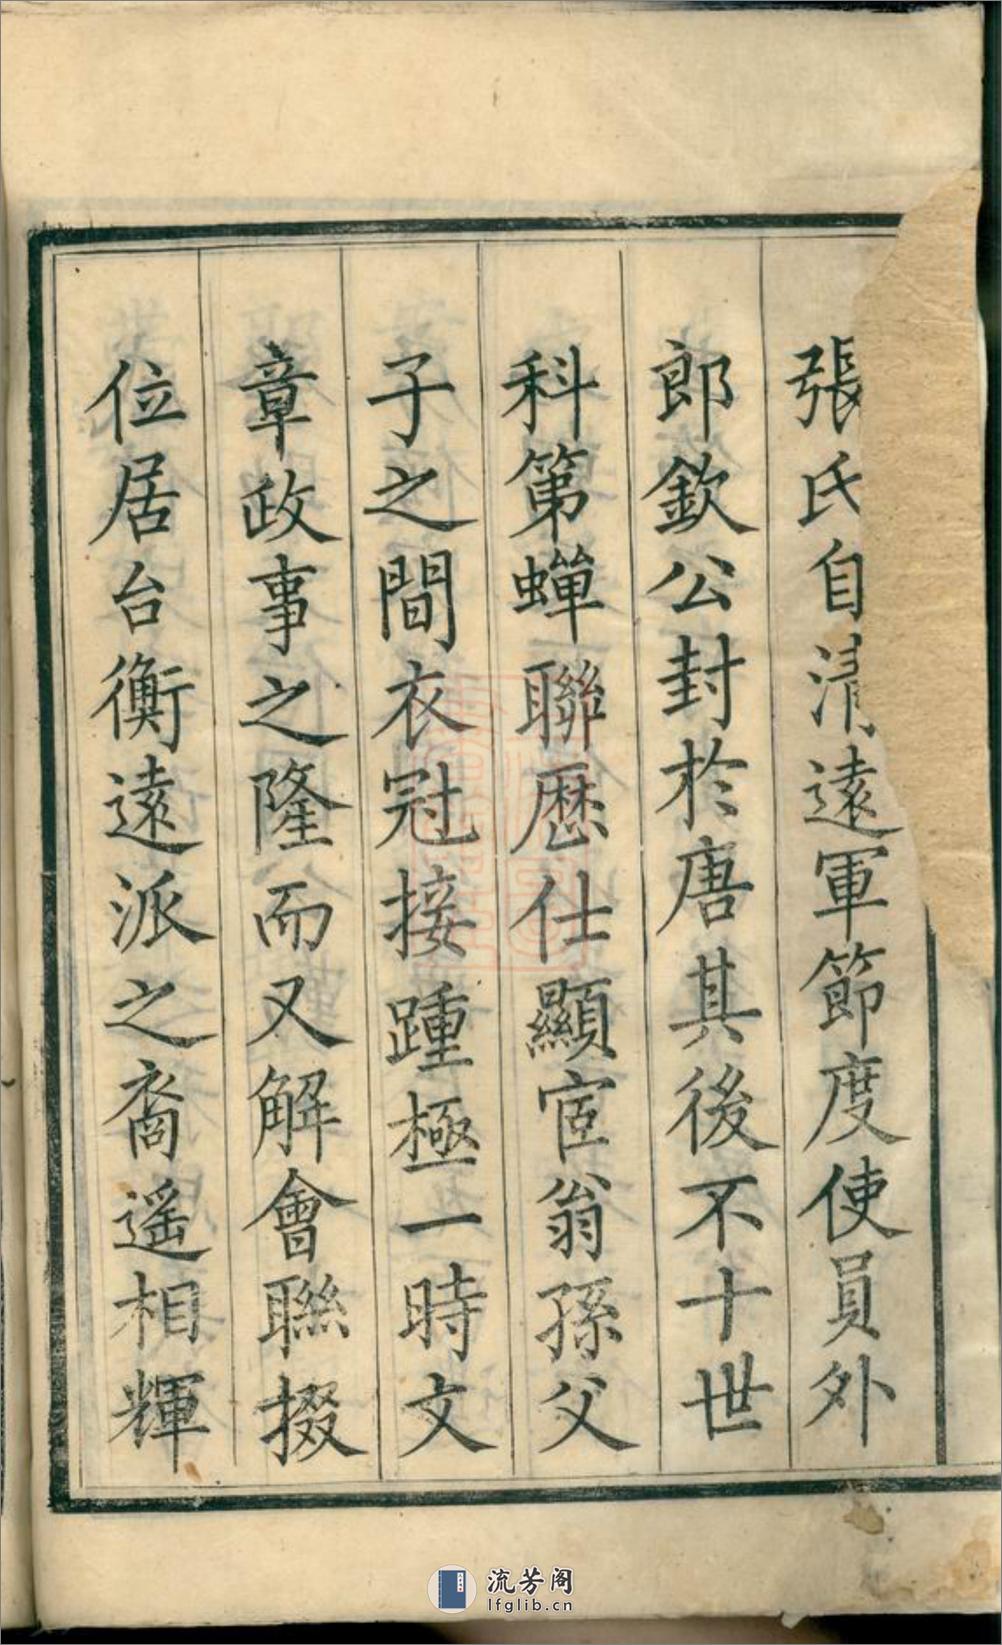 張氏自清遠軍節度使員外
郎欽公封於唐其後不十世
科第蟬聯歷仕顯宦翁孫父
子之間衣冠接踵極一時文
章政事之隆而又解會聯掇
位居台衡遠派之裔遥相輝
流芳阁
lfglib.cn